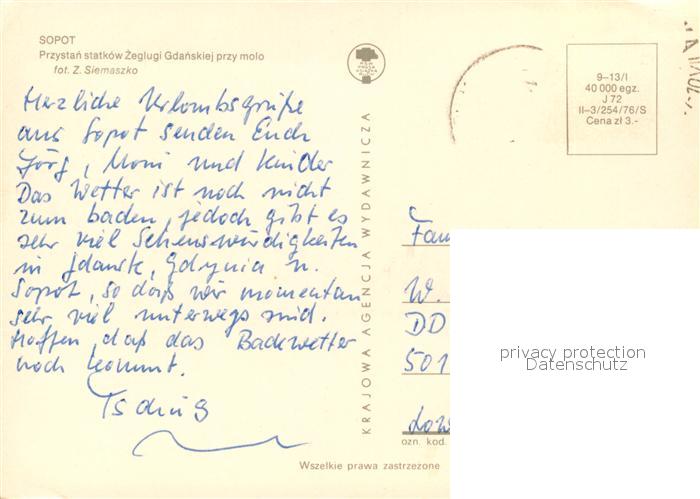 SOPOT
Przystań statków Żeglugi Gdańskiej przy molo
fot. Z. Siemaszko
Herzliche Urlaubsgrüße
aus Sopot senden Euch
Jörg, Moni und Kinder
Das Wetter ist noch nicht
zum baden, jedoch gibt es
sehr viel Sehenswürdigkeiten
in Gdansk, Gdynia u.
Sopot, so daß wir momentan
sehr viel unterwegs sind.
Hoffen, daß das Badewetter
noch kommt.
Tschüß
KRAJOWA AGENCJA WYDAWNICZA
9–13/I
40 000 egz.
J 72
II–3/254/76/S
Cena zł 3.-
Fam
W.
DD
501
privacy protection
Datenschutz
ozn. kod.
Wszelkie prawa zastrzeżone